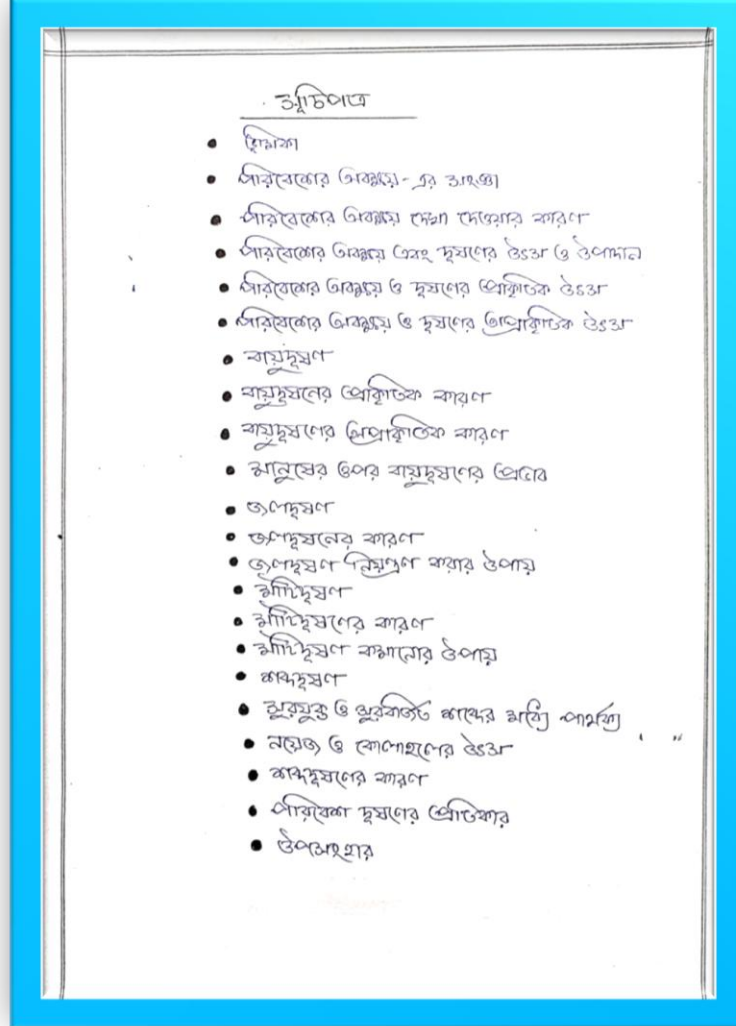 সূচিপত্র
ভূমিকা
পরিবেশের অবক্ষয়-এর সংজ্ঞা
পরিবেশের অবক্ষয় দেখা দেওয়ার কারণ
পরিবেশের অবক্ষয় এবং দূষণের উৎস ও উপাদান
পরিবেশের অবক্ষয় ও দূষণের প্রাকৃতিক উৎস
পরিবেশের অবক্ষয় ও দূষণের অপ্রাকৃতিক উৎস
বায়ুদূষণ
বায়ুদূষনের প্রাকৃতিক কারণ
বায়ুদূষণের অপ্রাকৃতিক কারণ
মানুষের ওপর বায়ুদূষণের প্রভাব
জলদূষণ
জলদূষনের কারণ
জলদূষণ নিয়ন্ত্রণ করার উপায়
মাটিদূষণ
মাটিদূষণের কারণ
মাটিদূষণ কমানোর উপায়
শব্দদূষণ
সুরযুক্ত ও সুরবর্জিত শব্দের মধ্যে পার্থক্য
নয়েজ ও কোলাহলের উৎস
শব্দদূষণের কারণ
পরিবেশ দূষণের প্রতিকার
উপসংহার